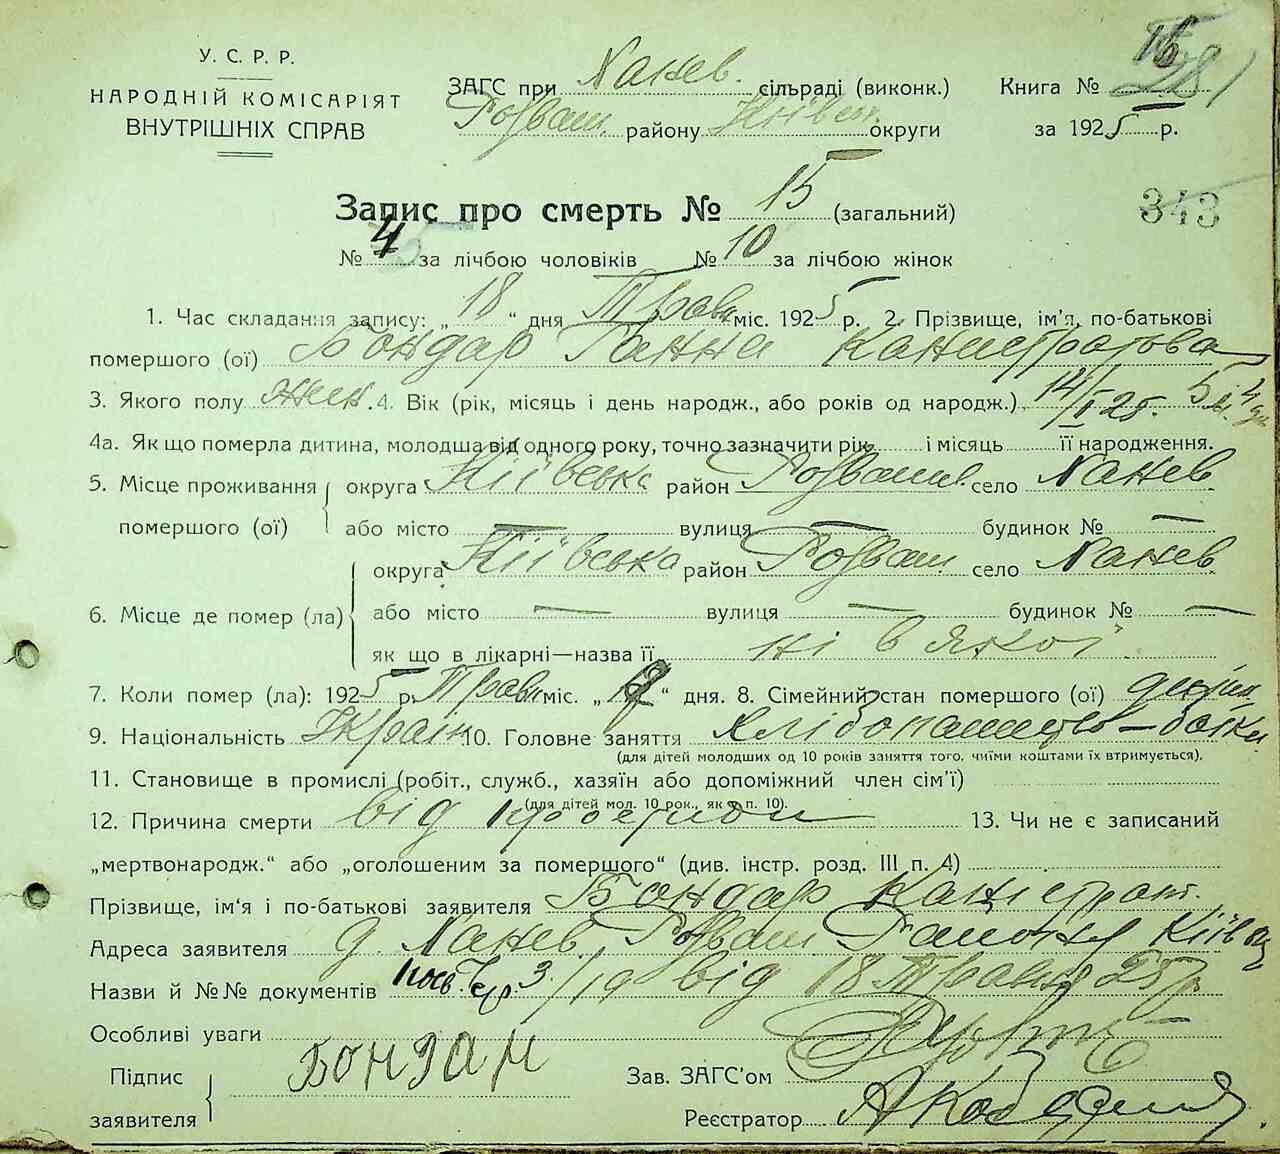 У. С. Р. Р.
НАРОДНІЙ КОМІСАРІЯТ
ВНУТРІШНІХ СПРАВ
ЗАГС при Ханев. сільраді (виконк.)
Розваш. району Київськ. округи
Книга №
за 1925 р.
343
Запис про смерть № 15 (загальний)
№ 4 за лічбою чоловіків № 10 за лічбою жінок
1. Час складання запису: „18“ дня Травн міс. 1925 р. 2. Прізвище, ім’я, по-батькові
помершого (ої) Бондар Ганна Каністратова
3. Якого полу жін. 4. Вік (рік, місяць і день народж., або років од народж.) 14/I 25.
4а. Як що померла дитина, молодша від одного року, точно зазначити рік і місяць її народження.
5. Місце проживання округа Київська район Розваш село Ханев
помершого (ої) або місто — вулиця — будинок № —
округа Київська район Розваш село Ханев
6. Місце де помер (ла) або місто — вулиця — будинок № —
як що в лікарні—назва її ні в якої
7. Коли помер (ла): 1925 р. Травн міс. „ “ дня. 8. Сімейний стан помершого (ої)
9. Національність Україн 10. Головне заняття Хлібопашцтв–батька
(для дітей молодших од 10 років заняття того, чиїми коштами їх втримується).
11. Становище в промислі (робіт., служб., хазяїн або допоміжний член сім’ї)
(для дітей мол. 10 рок., як у п. 10).
12. Причина смерти від 13. Чи не є записаний
„мертвонародж.“ або „оголошеним за помершого“ (див. інстр. розд. III п. 4)
Прізвище, ім’я і по-батькові заявителя Бондар Каністрат.
Адреса заявителя д. Ханев, Розваш Района Київ
Назви й №№ документів 3/19 від 18 Травня 25 р
Особливі уваги
Підпис
заявителя
Бондар
Зав. ЗАГС’ом
Реєстратор